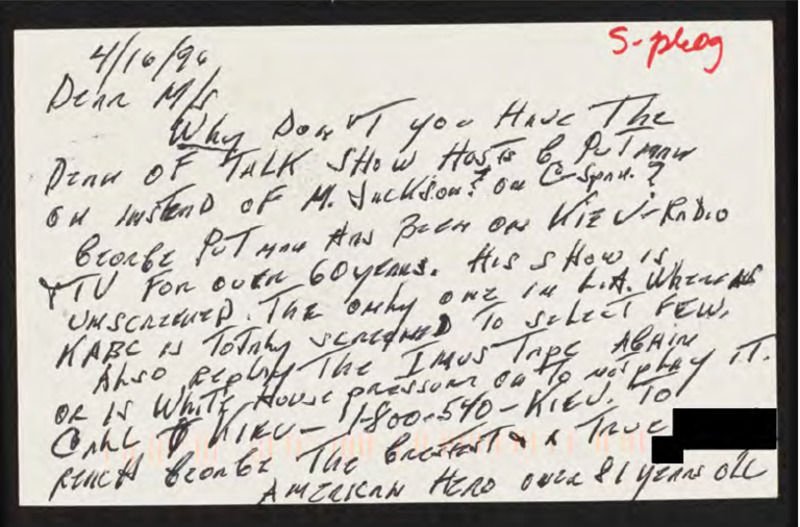 S-prog
4/16/96
Dear M/s
Why Don't you Have The
Dean of Talk Show Hosts G Putman
on instead of M. Jackson? on C-Span.?
George Putman Has Been on KIEV-Radio
+ TV For over 60 years. His show is
unscreened. The only one in L.A. Whereas
KABC is Totally screened To select FEW.
Also Replay The Imus Tape Again
or is White House pressure on To not play it.
Call KIEV- 1-800-540-KIEV. To
reach George The Greatest & a True
American Hero over 81 years old